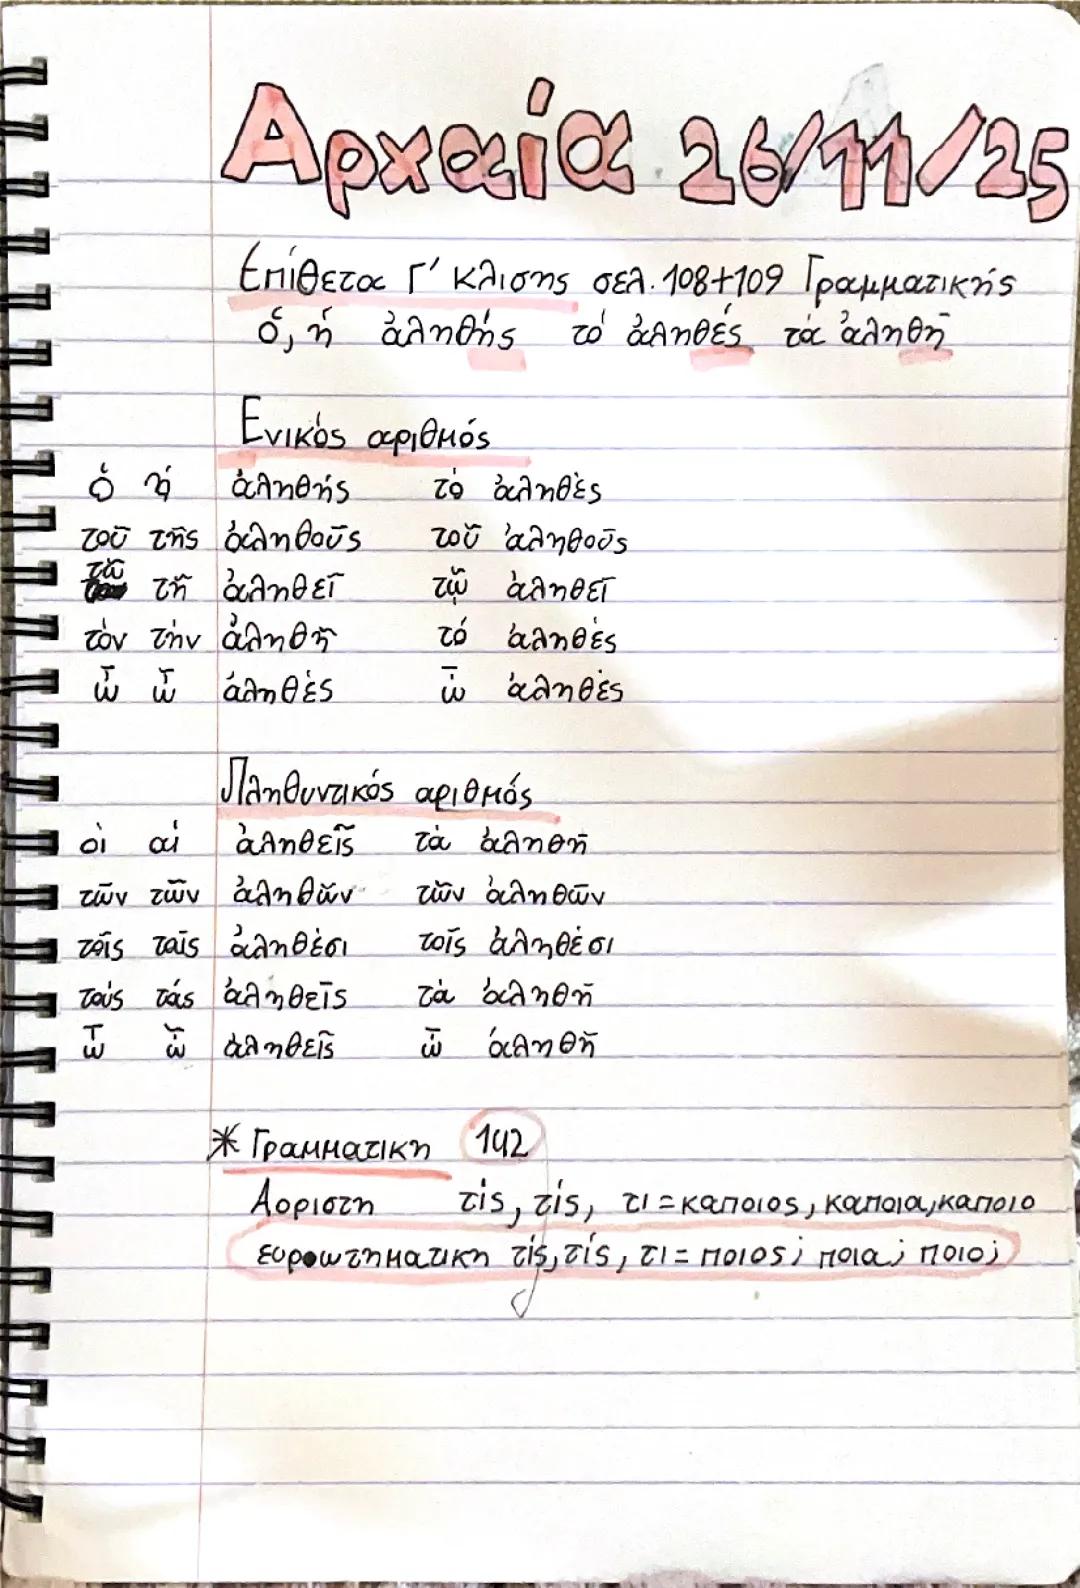 Αρχαία 26/11/25
Επίθετα Γ' κλισης σελ. 108+109 Γραμματικής
ὁ, ἡ ἀληθής τό ἀληθές τά ἀληθῆ
Ενικός αριθμός
ὁ ἡ ἀληθής τὸ ἀληθὲς
τοῦ τῆς ἀληθοῦς τοῦ ἀληθοῦς
τῶ τῆ ἀληθεῖ τῷ ἀληθεῖ
τὸν τὴν ἀληθῆ τό ἀληθές
ὦ ὦ ἀληθὲς ὦ ἀληθὲς
Πληθυντικός αριθμός
οἱ αἱ ἀληθεῖς τὰ ἀληθῆ
τῶν τῶν ἀληθῶν τῶν ἀληθῶν
τοῖς ταῖς ἀληθέσι τοῖς ἀληθέσι
τούς τάς ἀληθεῖς τὰ ἀληθῆ
ὦ ὦ ἀληθεῖς ὦ ἀληθῆ
* Γραμματικη 142
Αοριστη τὶς, τίς, τι = καποιος, καποια, καποιο
ευρωτηματικη τίς, τίς, τι = ποιος; ποια; ποιο;